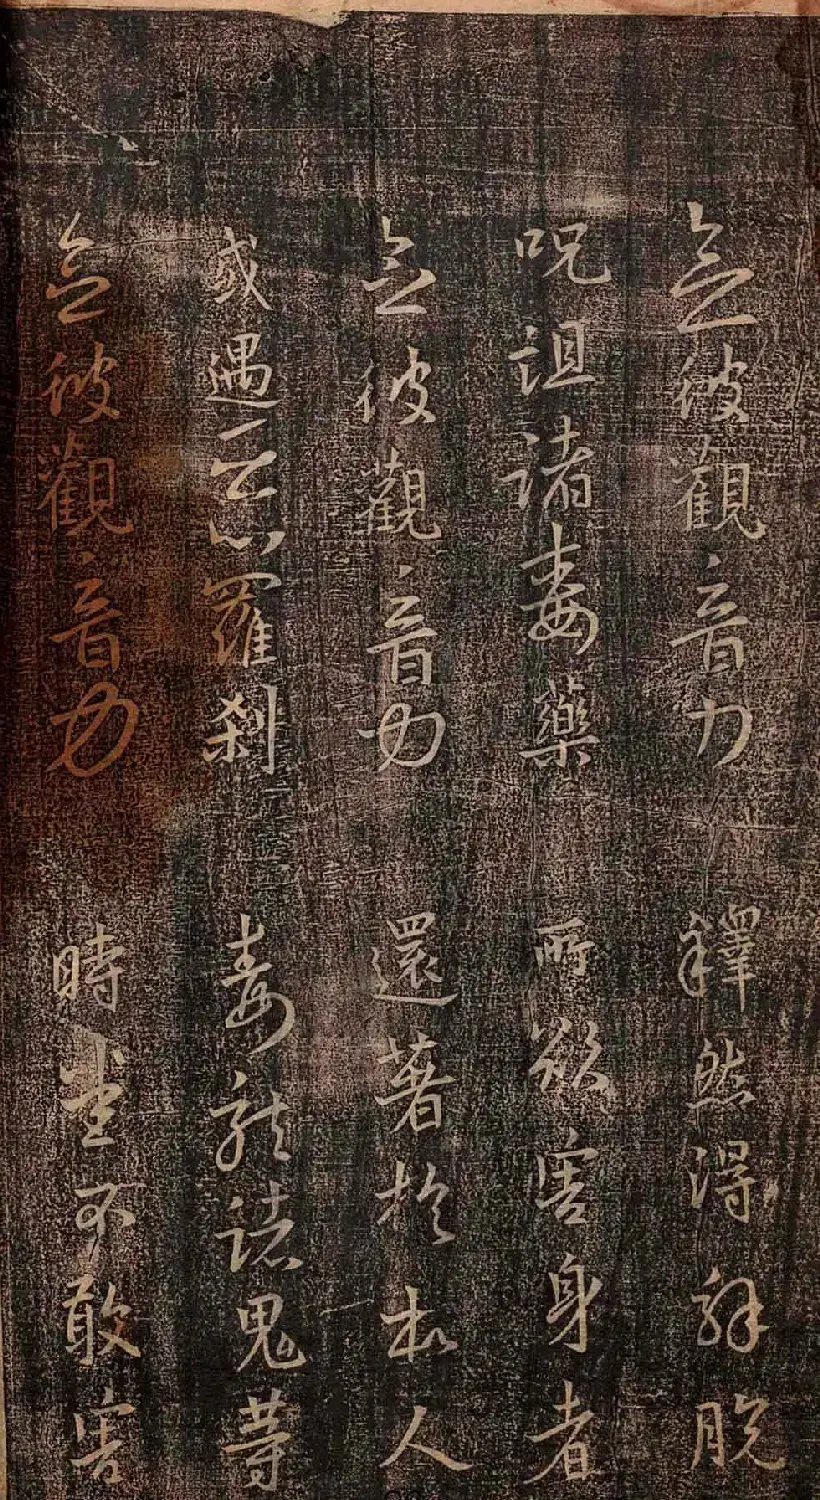 念彼觀音力 釋然得解脫
呪詛諸毒藥 所欲害身者
念彼觀音力 還著於本人
或遇惡羅剎 毒龍諸鬼等
念彼觀音力 時悉不敢害